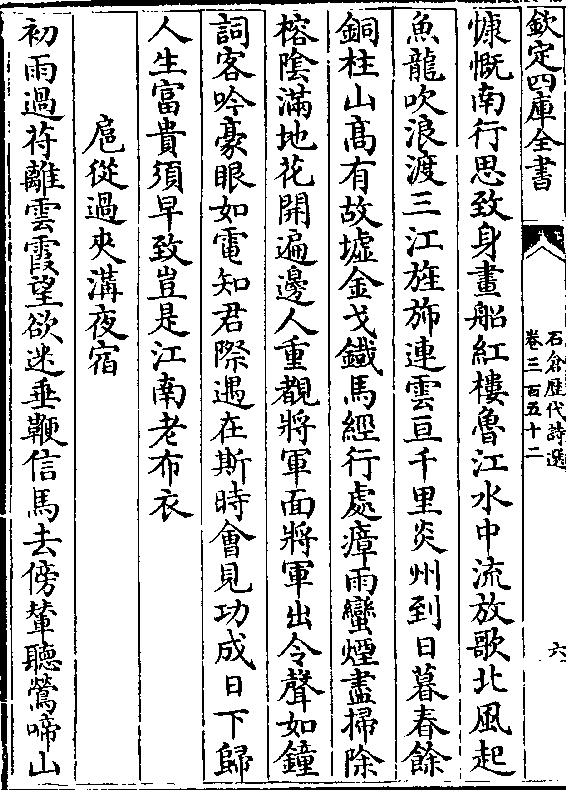 欽定四庫全書
石倉歴代詩選
卷三百五十二
六
慷慨南行思致身畫船紅樓魯江水中流放歌北風起
魚龍吹浪渡三江旌斾連雲亘千里炎州到日暮春餘
銅柱山髙有故墟金戈鐡馬經行處瘴雨蠻煙盡掃除
榕隂滿地花開遍邊人重覩將軍面將軍出令聲如鐘
詞客吟豪眼如電知君際遇在斯時會見功成日下歸
人生富貴須早致豈是江南老布衣
扈從過夾溝夜宿
初雨過符離雲霞望欲迷垂鞭信馬去傍輦聽鶯啼山